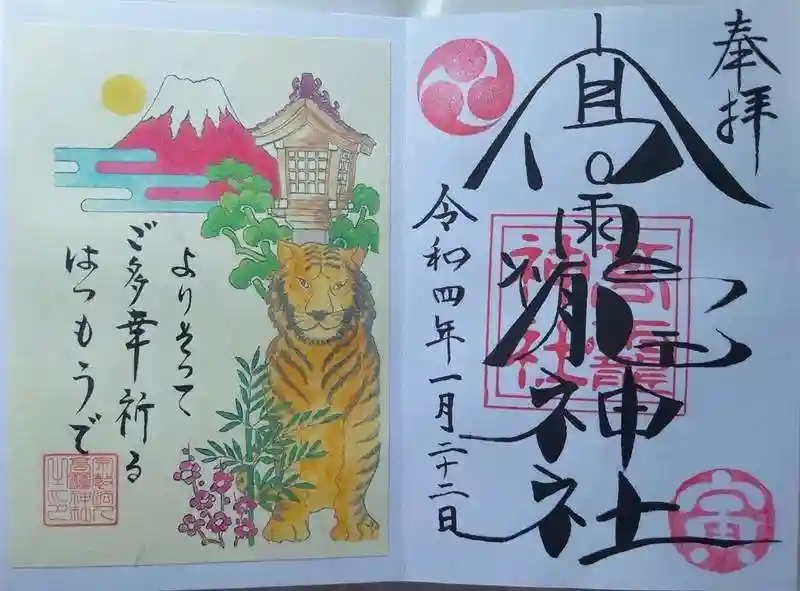 奉拝
髙龗神社
令和四年一月二十二日
寅
よりそって
ご多幸祈る
はつもうで